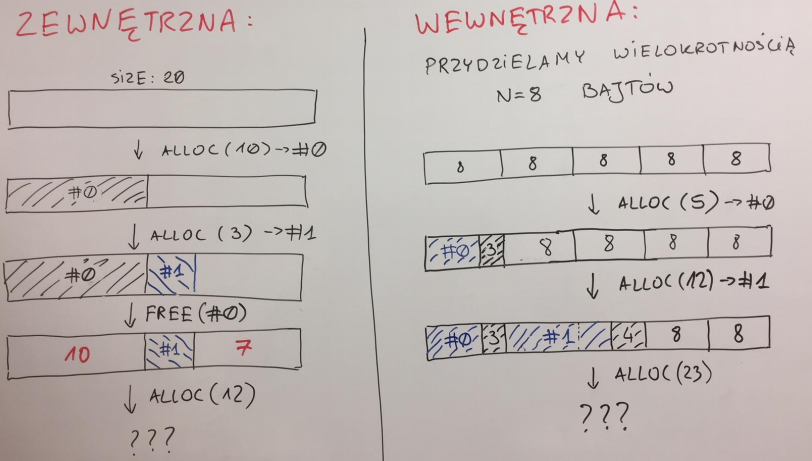 ZEWNĘTRZNA:
SIZE: 20
↓ ALLOC(10)→#0
#0
↓ ALLOC(3)→#1
#0 #1
↓ FREE(#0)
10 #1 7
↓ ALLOC(12)
???
WEWNĘTRZNA:
PRZYDZIELAMY WIELOKROTNOŚCIĄ
N=8 BAJTÓW
8 8 8 8 8
↓ ALLOC(5)→#0
#0 3 8 8 8 8
↓ ALLOC(12)→#1
#0 3 #1 4 8 8
↓ ALLOC(23)
???